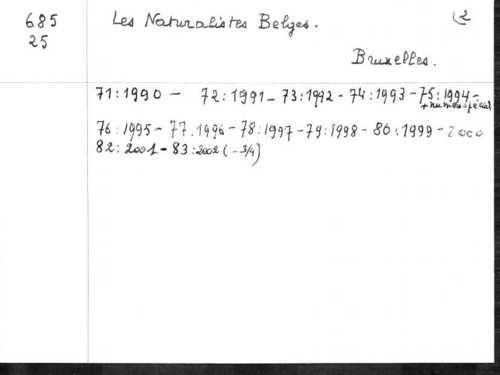 685 Les Naturalistes Belges. (2
25
Bruxelles.
71:1990 - 72:1991 - 73:1992 - 74:1993 - 75:1994 -
+ numéro spécial
76:1995 - 77:1996 - 78:1997 - 79:1998 - 80:1999 - 2000
82:2001 - 83:2002 (-3/4)